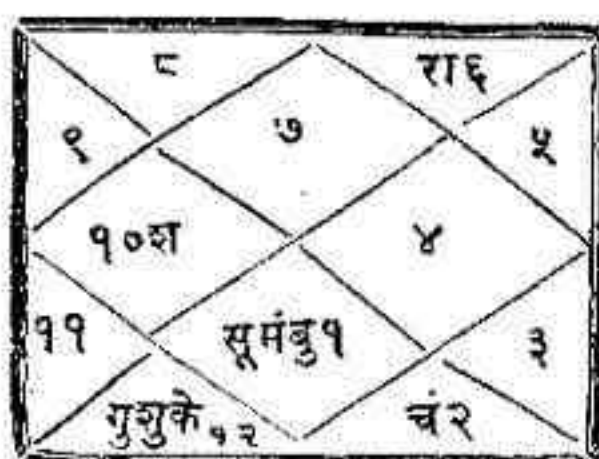 ८ रा६
९ ७ ५
१०श ४
११ सूमंबु१ ३
गुशुके१२ चं२